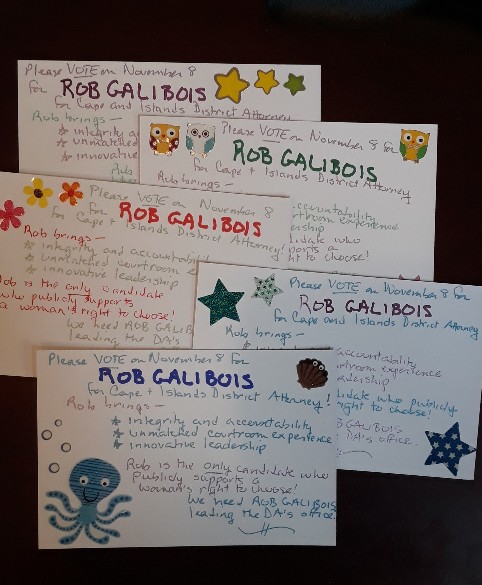 Please VOTE on November 8
for ROB GALIBOIS
for Cape and Islands District Attorney
Rob brings:
integrity a
unmatched
innovative
Rob
Please VOTE on November 8 for
ROB GALIBOIS
for Cape + Islands District Attorney
Rob brings -
accountability
rtroom experience
ership
didate who
ports a
ht to choose!
Please VOTE on November 8
for ROB GALIBOIS
for Cape + Islands District Attorney!
Rob brings -
integrity and accountability
unmatched courtroom e
innovative leadership
Rob is the only candidate
who publicly supports
a woman's right to choose!
We need ROB GALIB
leading the DA's
Please VOTE on November 8 for
ROB GALIBOIS
for Cape + Islands District Attorney
Rob brings -
accountability
rtroom experience
adership
didate who publicly
right to choose!
OB GALIBOIS
DA's office.
Please VOTE on November 8 for
ROB GALIBOIS
for Cape + Islands District Attorney!
Rob brings -
integrity and accountability
unmatched courtroom experience
innovative leadership
Rob is the only candidate who
publicly supports a
woman's right to choose!
We need ROB GALIBOIS
leading the DA's office.